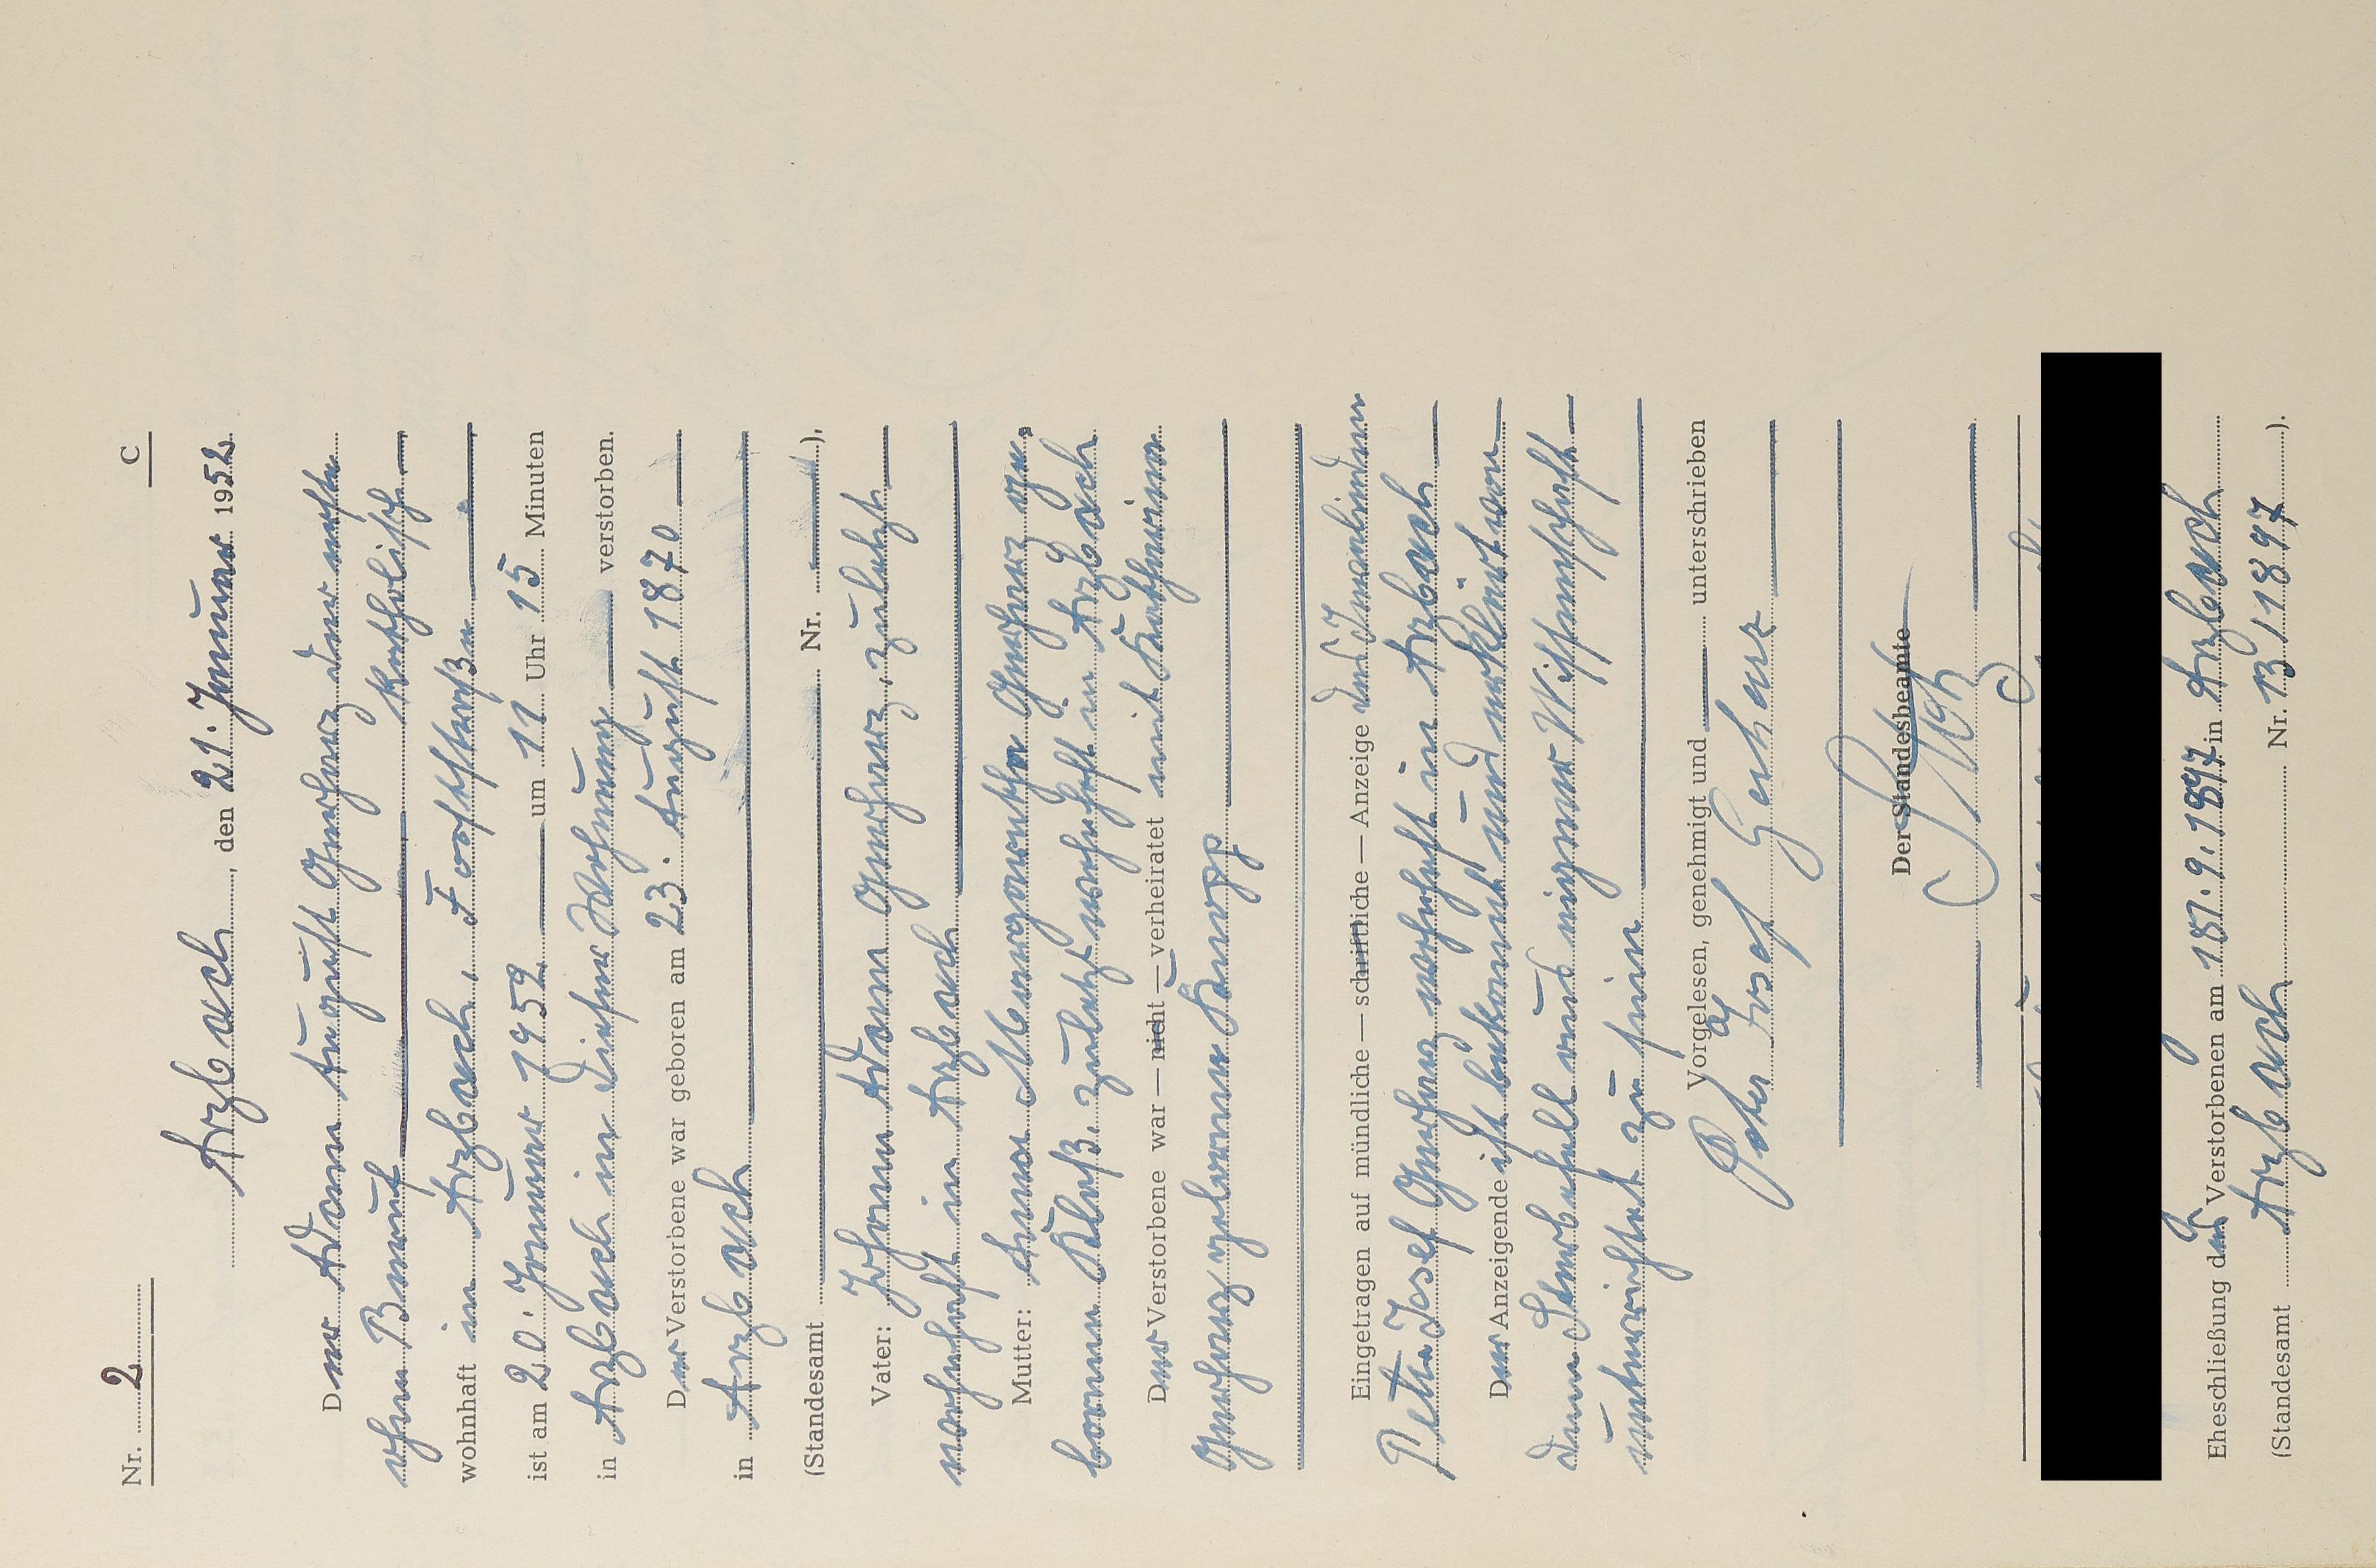 Nr. 2 C
Arzbach, den 21. Januar 1952
Der Adam August Gerharz
ohne Beruf katholisch
wohnhaft in Arzbach, Forststraße
ist am 20. Januar 1952 um 11 Uhr 15 Minuten
in Arzbach in dieser Wohnung verstorben.
Der Verstorbene war geboren am 23. August 1870
in Arzbach
(Standesamt Nr. ),
Vater: Johann Adam Gerharz, zuletzt
wohnhaft in Arzbach
Mutter: Anna Margaretha Gerharz ge-
borene zuletzt wohnhaft in Arzbach
Der Verstorbene war — nicht — verheiratet mit Katharina
Gerharz geborene Knopp
Eingetragen auf mündliche — schriftliche — Anzeige des Invaliden
Peter Josef Gerharz wohnhaft in Arzbach
Der Anzeigende ist bekannt und erklärt von
dem Sterbefall aus eigener Wissenschaft
unterrichtet zu sein
Vorgelesen, genehmigt und unterschrieben
Peter Josef Gerharz
Der Standesbeamte
Eheschließung des Verstorbenen am 9. 1897 in Arzbach
(Standesamt Arzbach Nr. 13/1897 ).